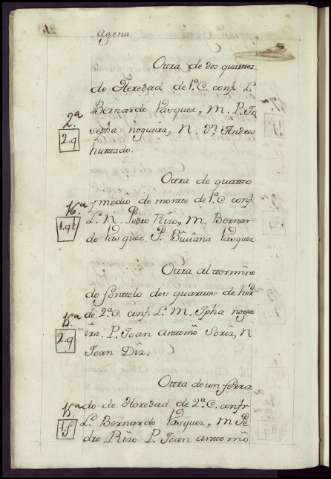 agena
Otra de dos quartos
de Heredad de 1ª C. conf. L.
Bernardo Vazquez, M. P. Jo
sepha nogueira, N. Dⁿ Andres
hurtado.
2.ª
2.q
Otra de quatro
y medio de monte de 1ª C. conf.
L. N. Pedro Riso, M. Bernar
do Vazquez, P. Biviana Vazquez
Otra al termino
de fontelo dos quartos de her
de 2ª C. conf. L. M. Jpha nogu
eira, P. Joan antonio
Joan Diz.
2.q
Otra de un
do de Heredad de 2ª C. confr
L. Bernardo Vazquez, M. Pe
dro Riso P. Joan antonio